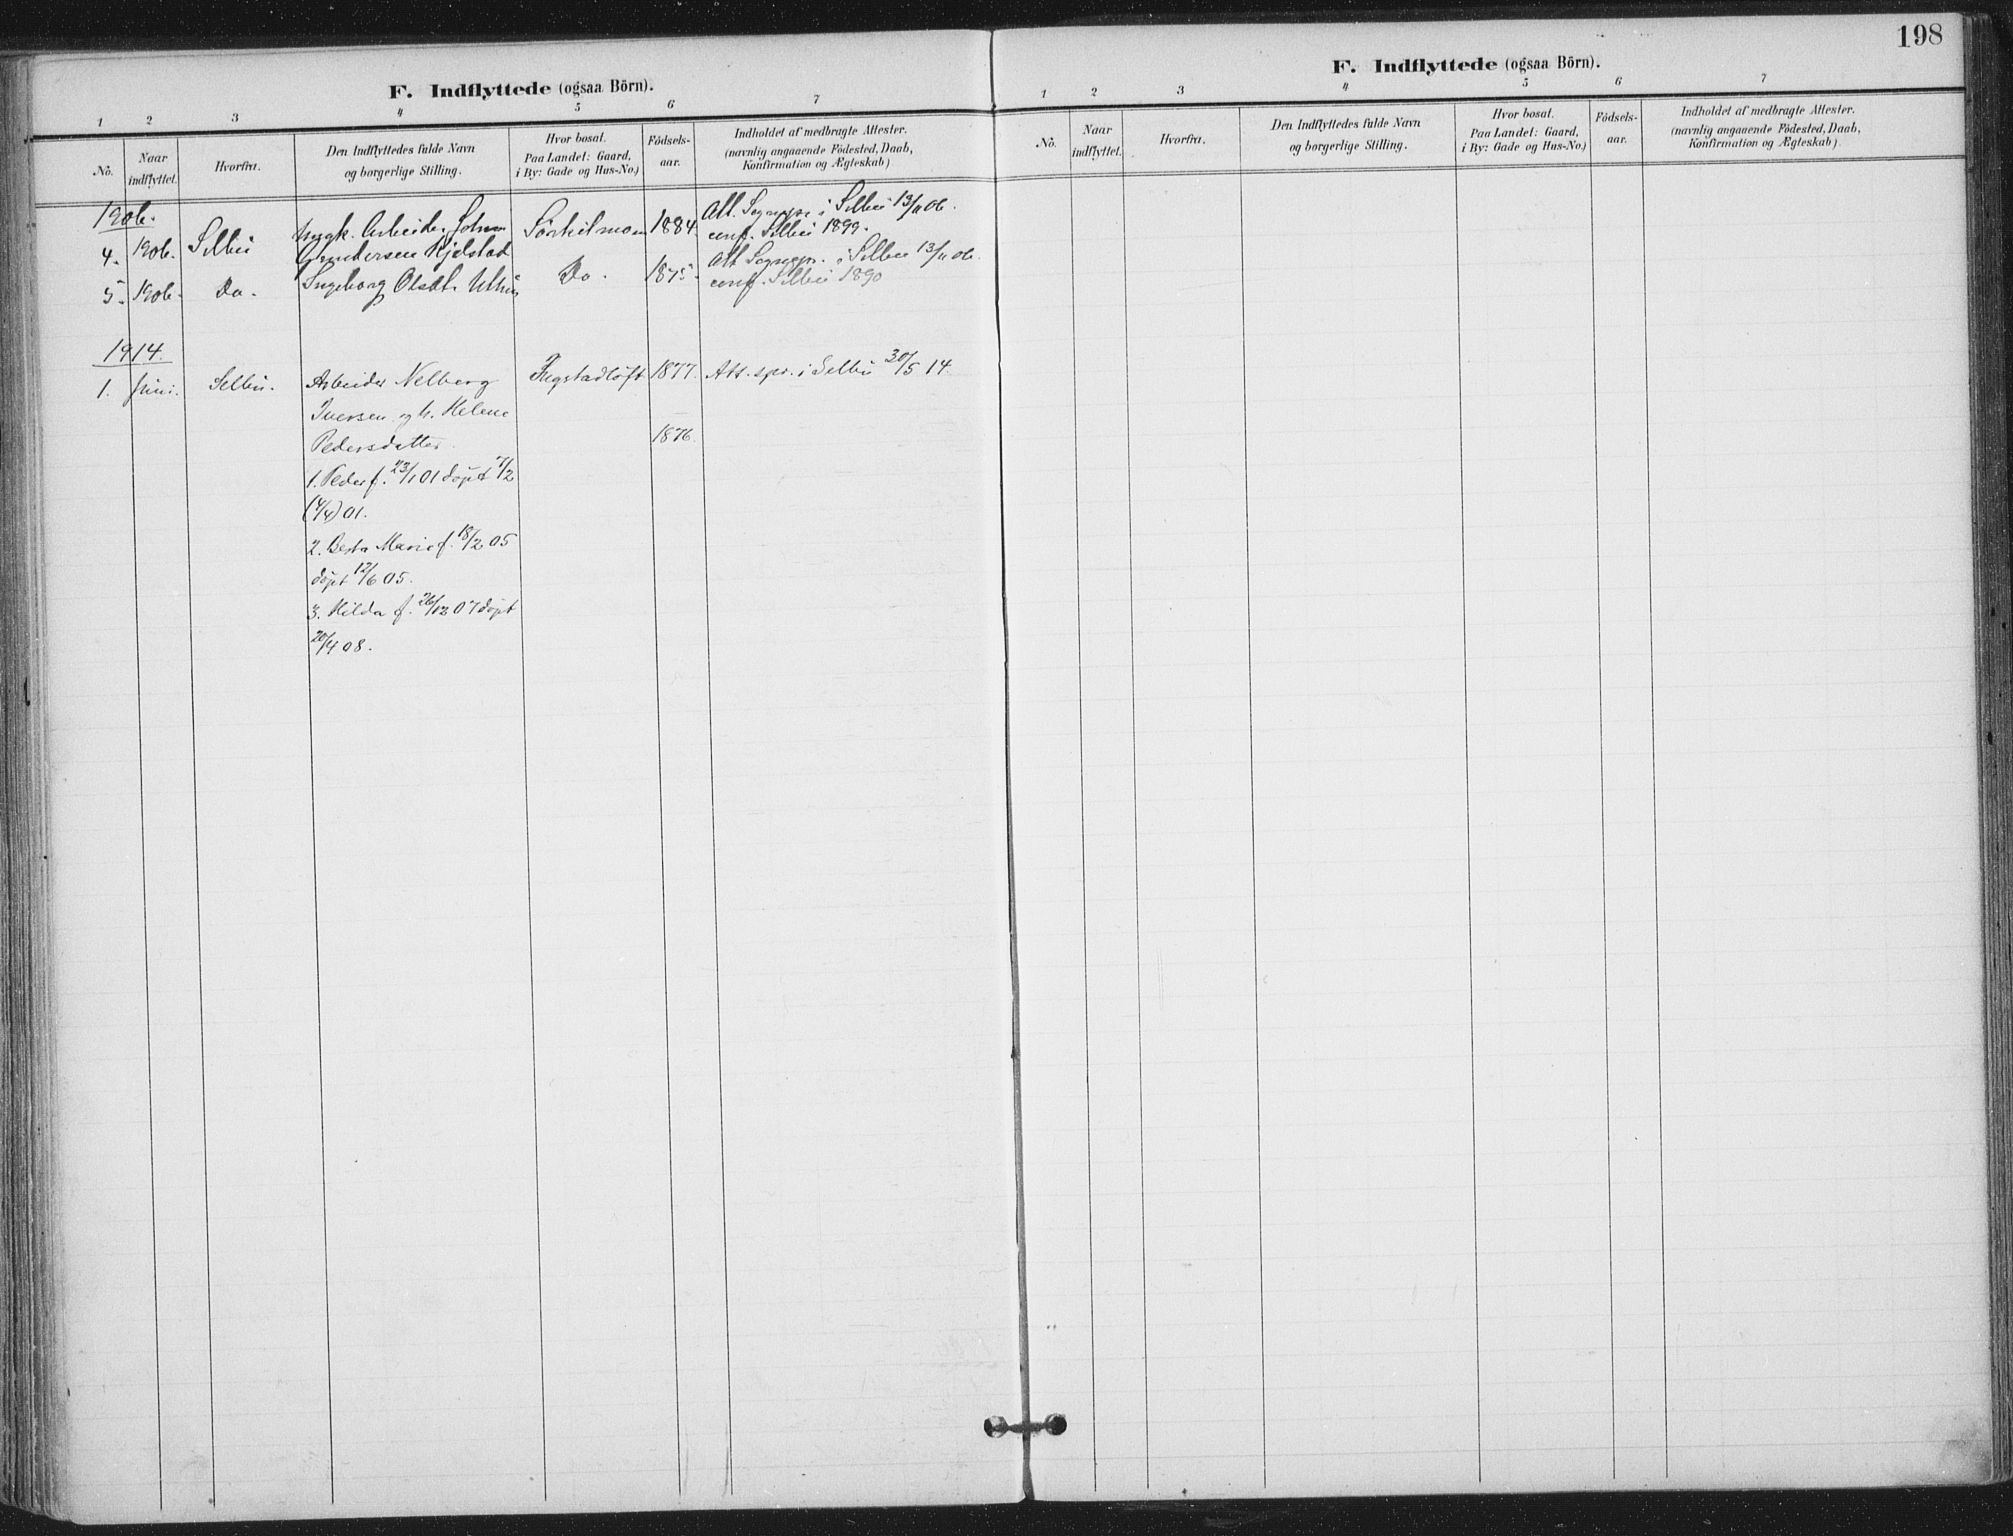 198
F. Indflyttede (ogsaa Börn).
1 2 3 4 5 6 7
No.
Naar
indflyttet.
Hvorfra.
Den Indflyttedes fulde Navn
og borgerlige Stilling.
Hvor bosat.
Paa Landet: Gaard,
i By: Gade og Hus-No.)
Födsels-
aar.
Indholdet af medbragte Attester.
(navnlig angaaende Födested, Daab,
Konfirmation og Ægteskab)
1906.
4. 1906. Selbu
Ungk. Arbeider Johan
Gundersen Kjelstad
1884.
Att. Sognepr. i Selbu 13/11 06.
conf. Selbu 1899.
5. 1906. Do. Ingeborg Olsdt. Uthus Do. 1875.
Att Sognepr. i Selbu 13/11 06.
conf. Selbu 1890
1914.
1. Juni. Selbu. Arbeider Nelberg Ingstadloft 1877. Att. spr. i Selbu 30/5 14.
Iversen og h. Helene
Pedersdatter. 1876.
1. Peder f. 23/1 01 döpt 7/2
(4/4) 01.
2. Berta Marie f. 18/2 05
döpt 12/6 05.
3. Hilda f. 26/12 07 döpt
20/4 08.
F. Indflyttede (ogsaa Börn).
1 2 3 4 5 6 7
No.
Naar
indflyttet.
Hvorfra.
Den Indflyttedes fulde Navn
og borgerlige Stilling.
Hvor bosat.
Paa Landet: Gaard,
i By: Gade og Hus-No.)
Födsels-
aar.
Indholdet af medbragte Attester.
(navnlig angaaende Födested, Daab,
Konfirmation og Ægteskab)